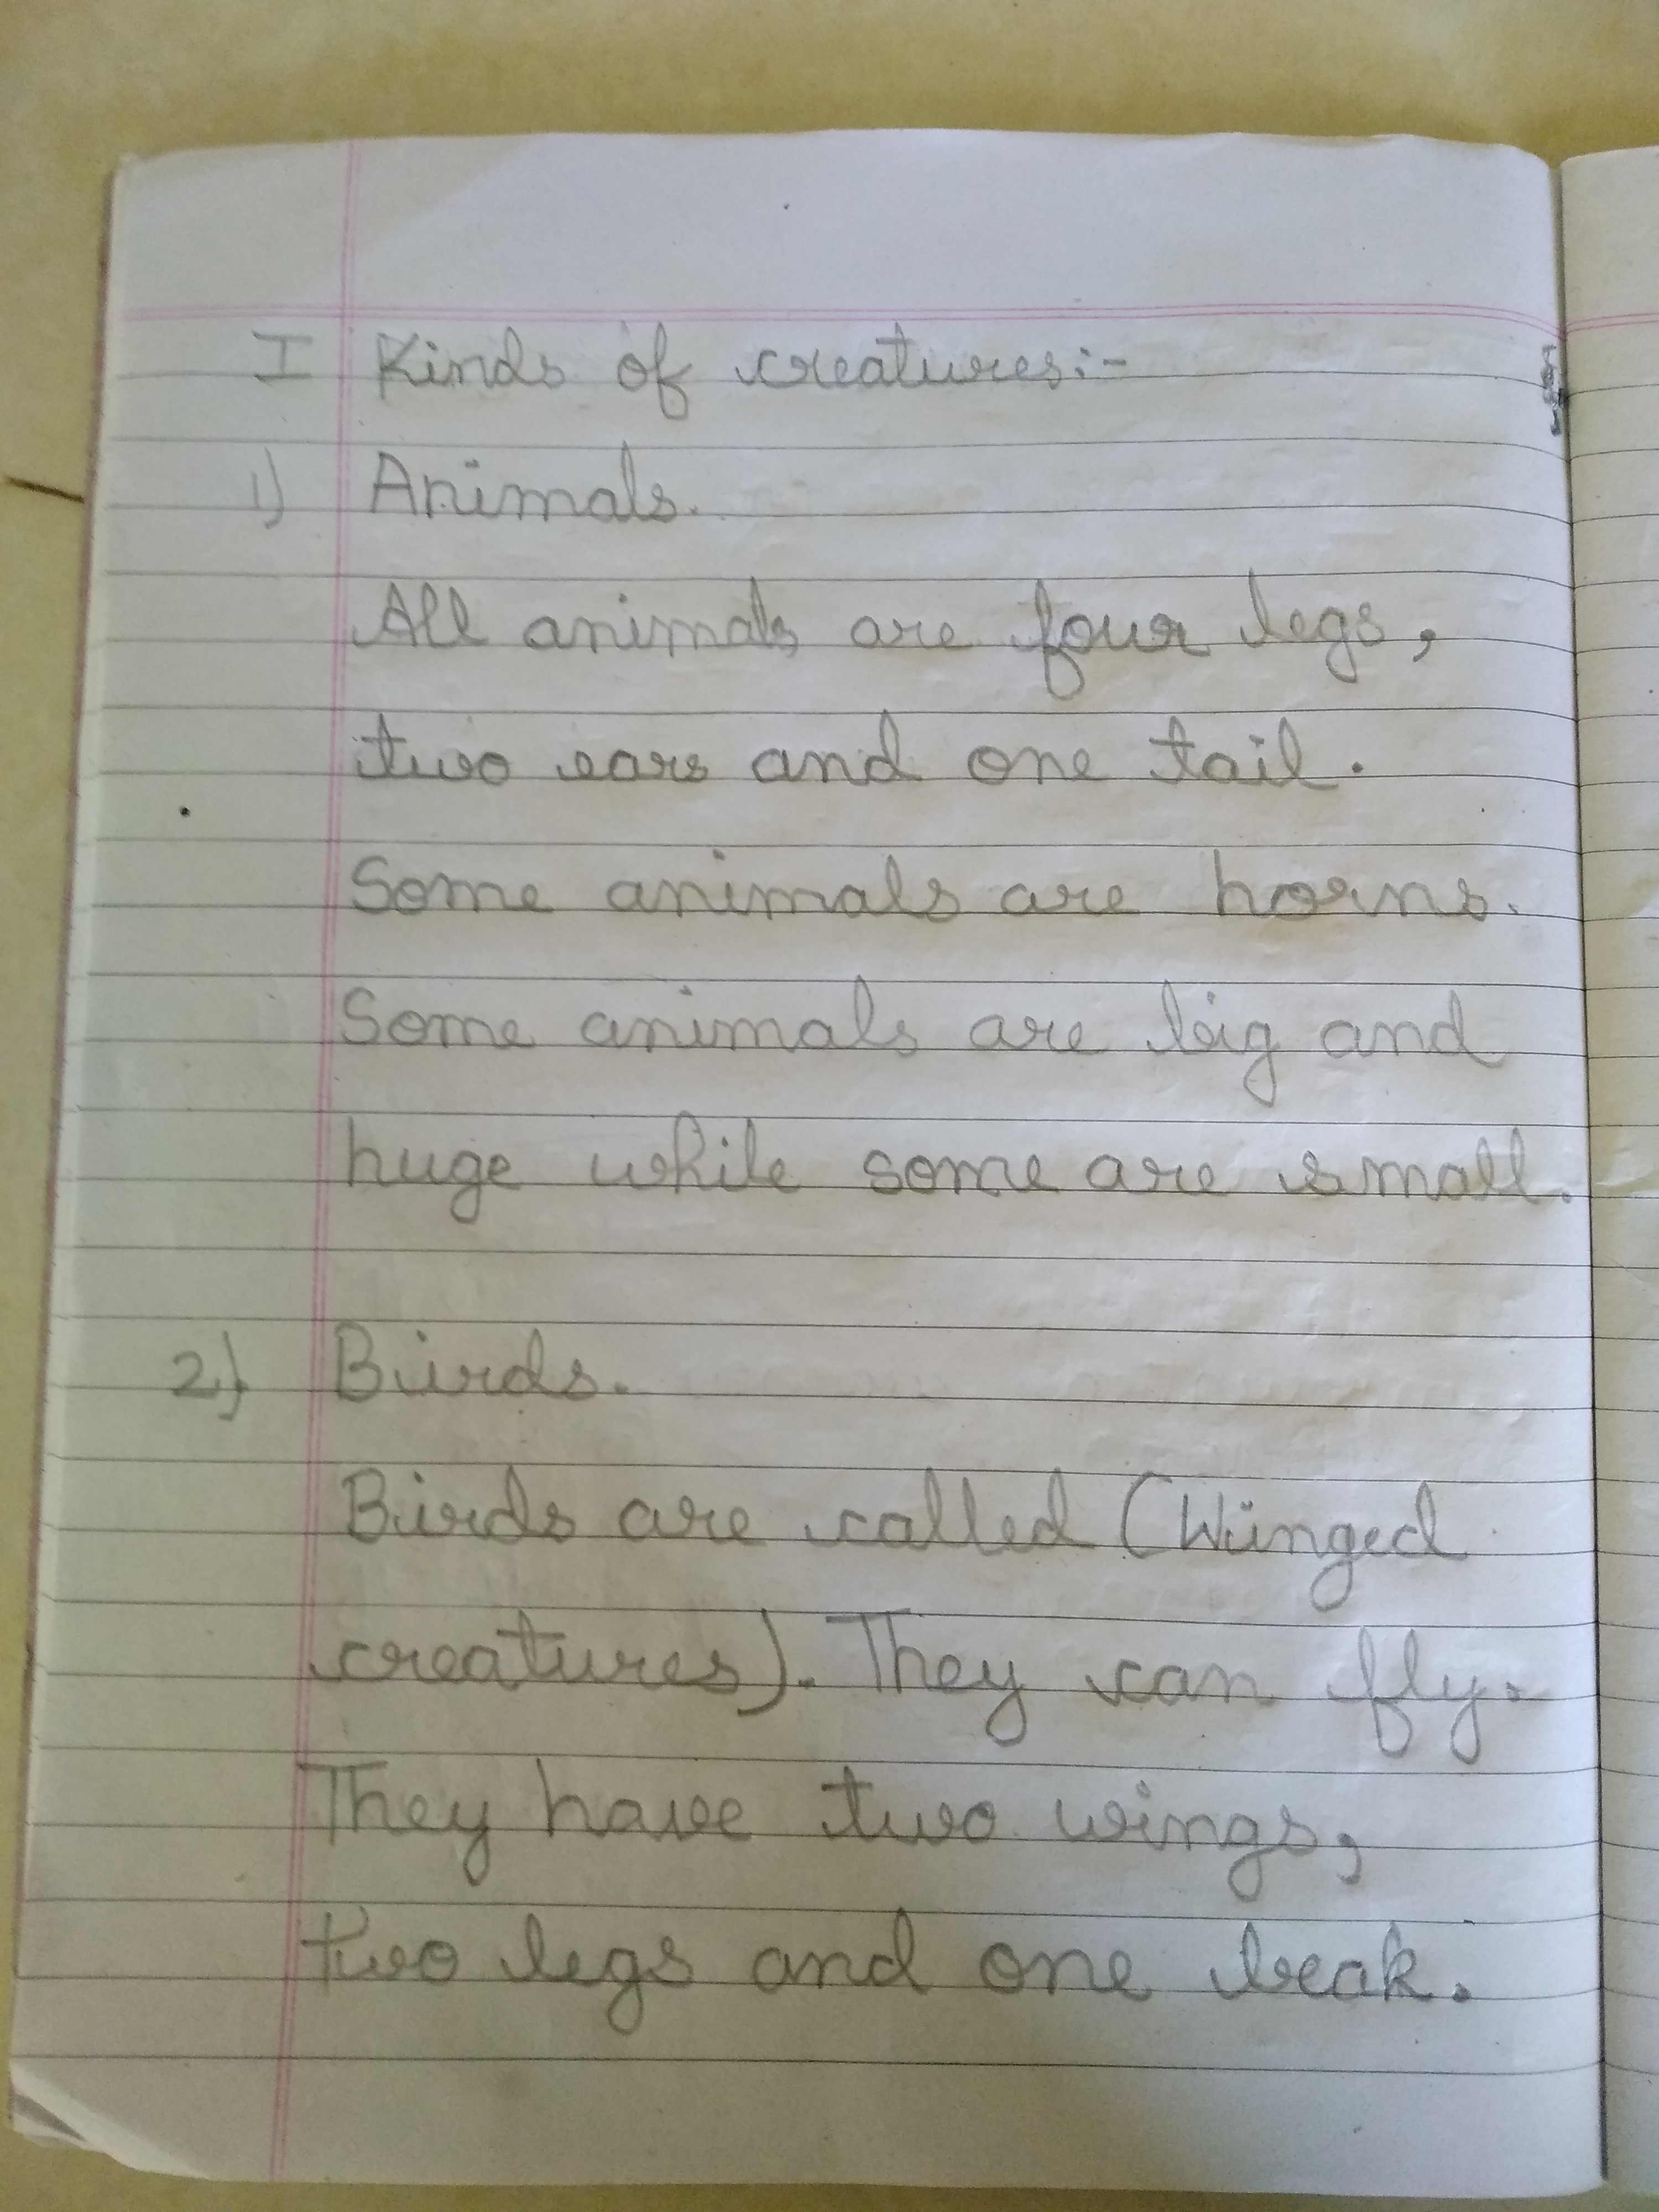 I Kinds of creatures:-
1) Animals.
All animals are four legs,
two ears and one tail.
Some animals are horns.
Some animals are big and
huge while some are small.
2) Birds.
Birds are called (Winged
creatures). They can fly.
They have two wings,
two legs and one beak.